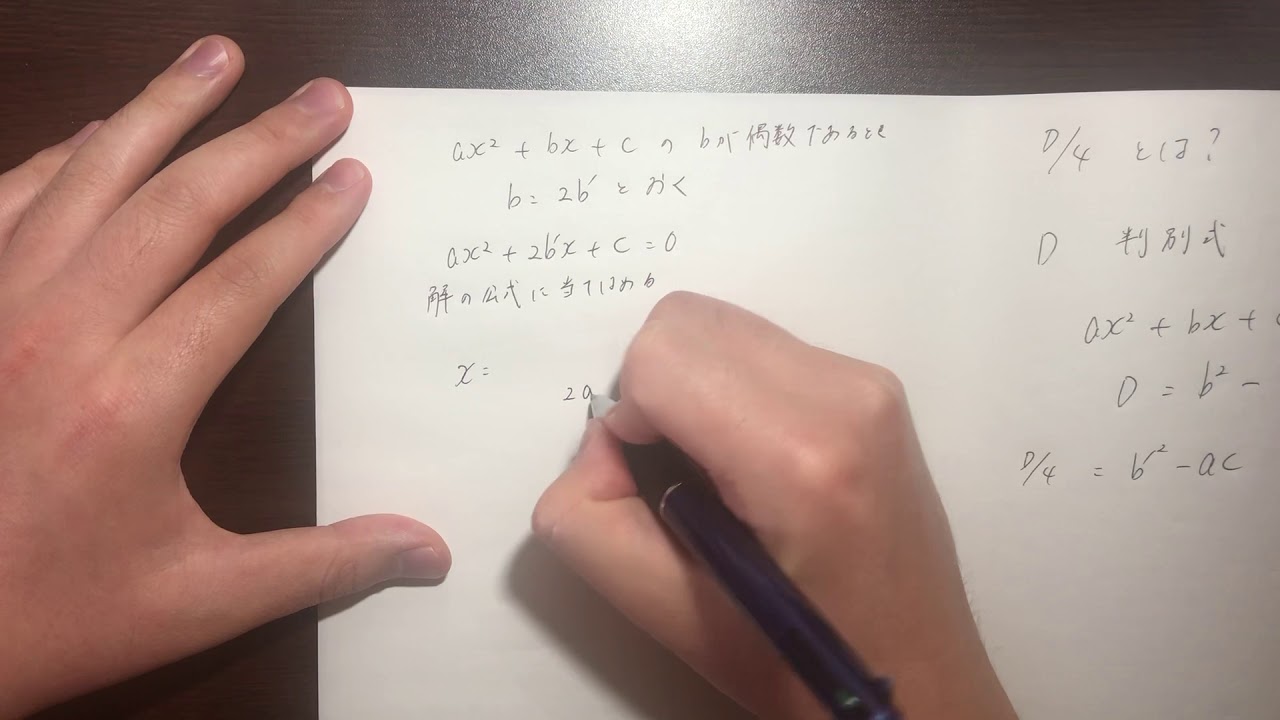 ax² + bx + c の bが偶数であるとき
b = 2b′ とおく
ax² + 2b′x + c = 0
解の公式に当てはめる
x =
2a
D/4 とは?
D 判別式
ax² + bx +
D = b² -
D/4 = b′² - ac